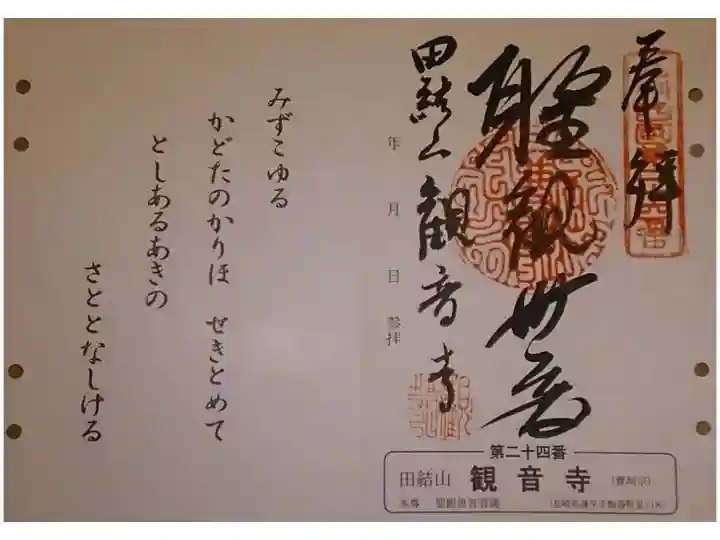 奉拝
聖観世音
年 月 日 参拝
田結山観音寺
みずこゆる
かどたのかりほ ぜきとめて
としあるあきの
さととなしける
第二十四番
田結山 観音寺
本尊 聖観世音菩薩